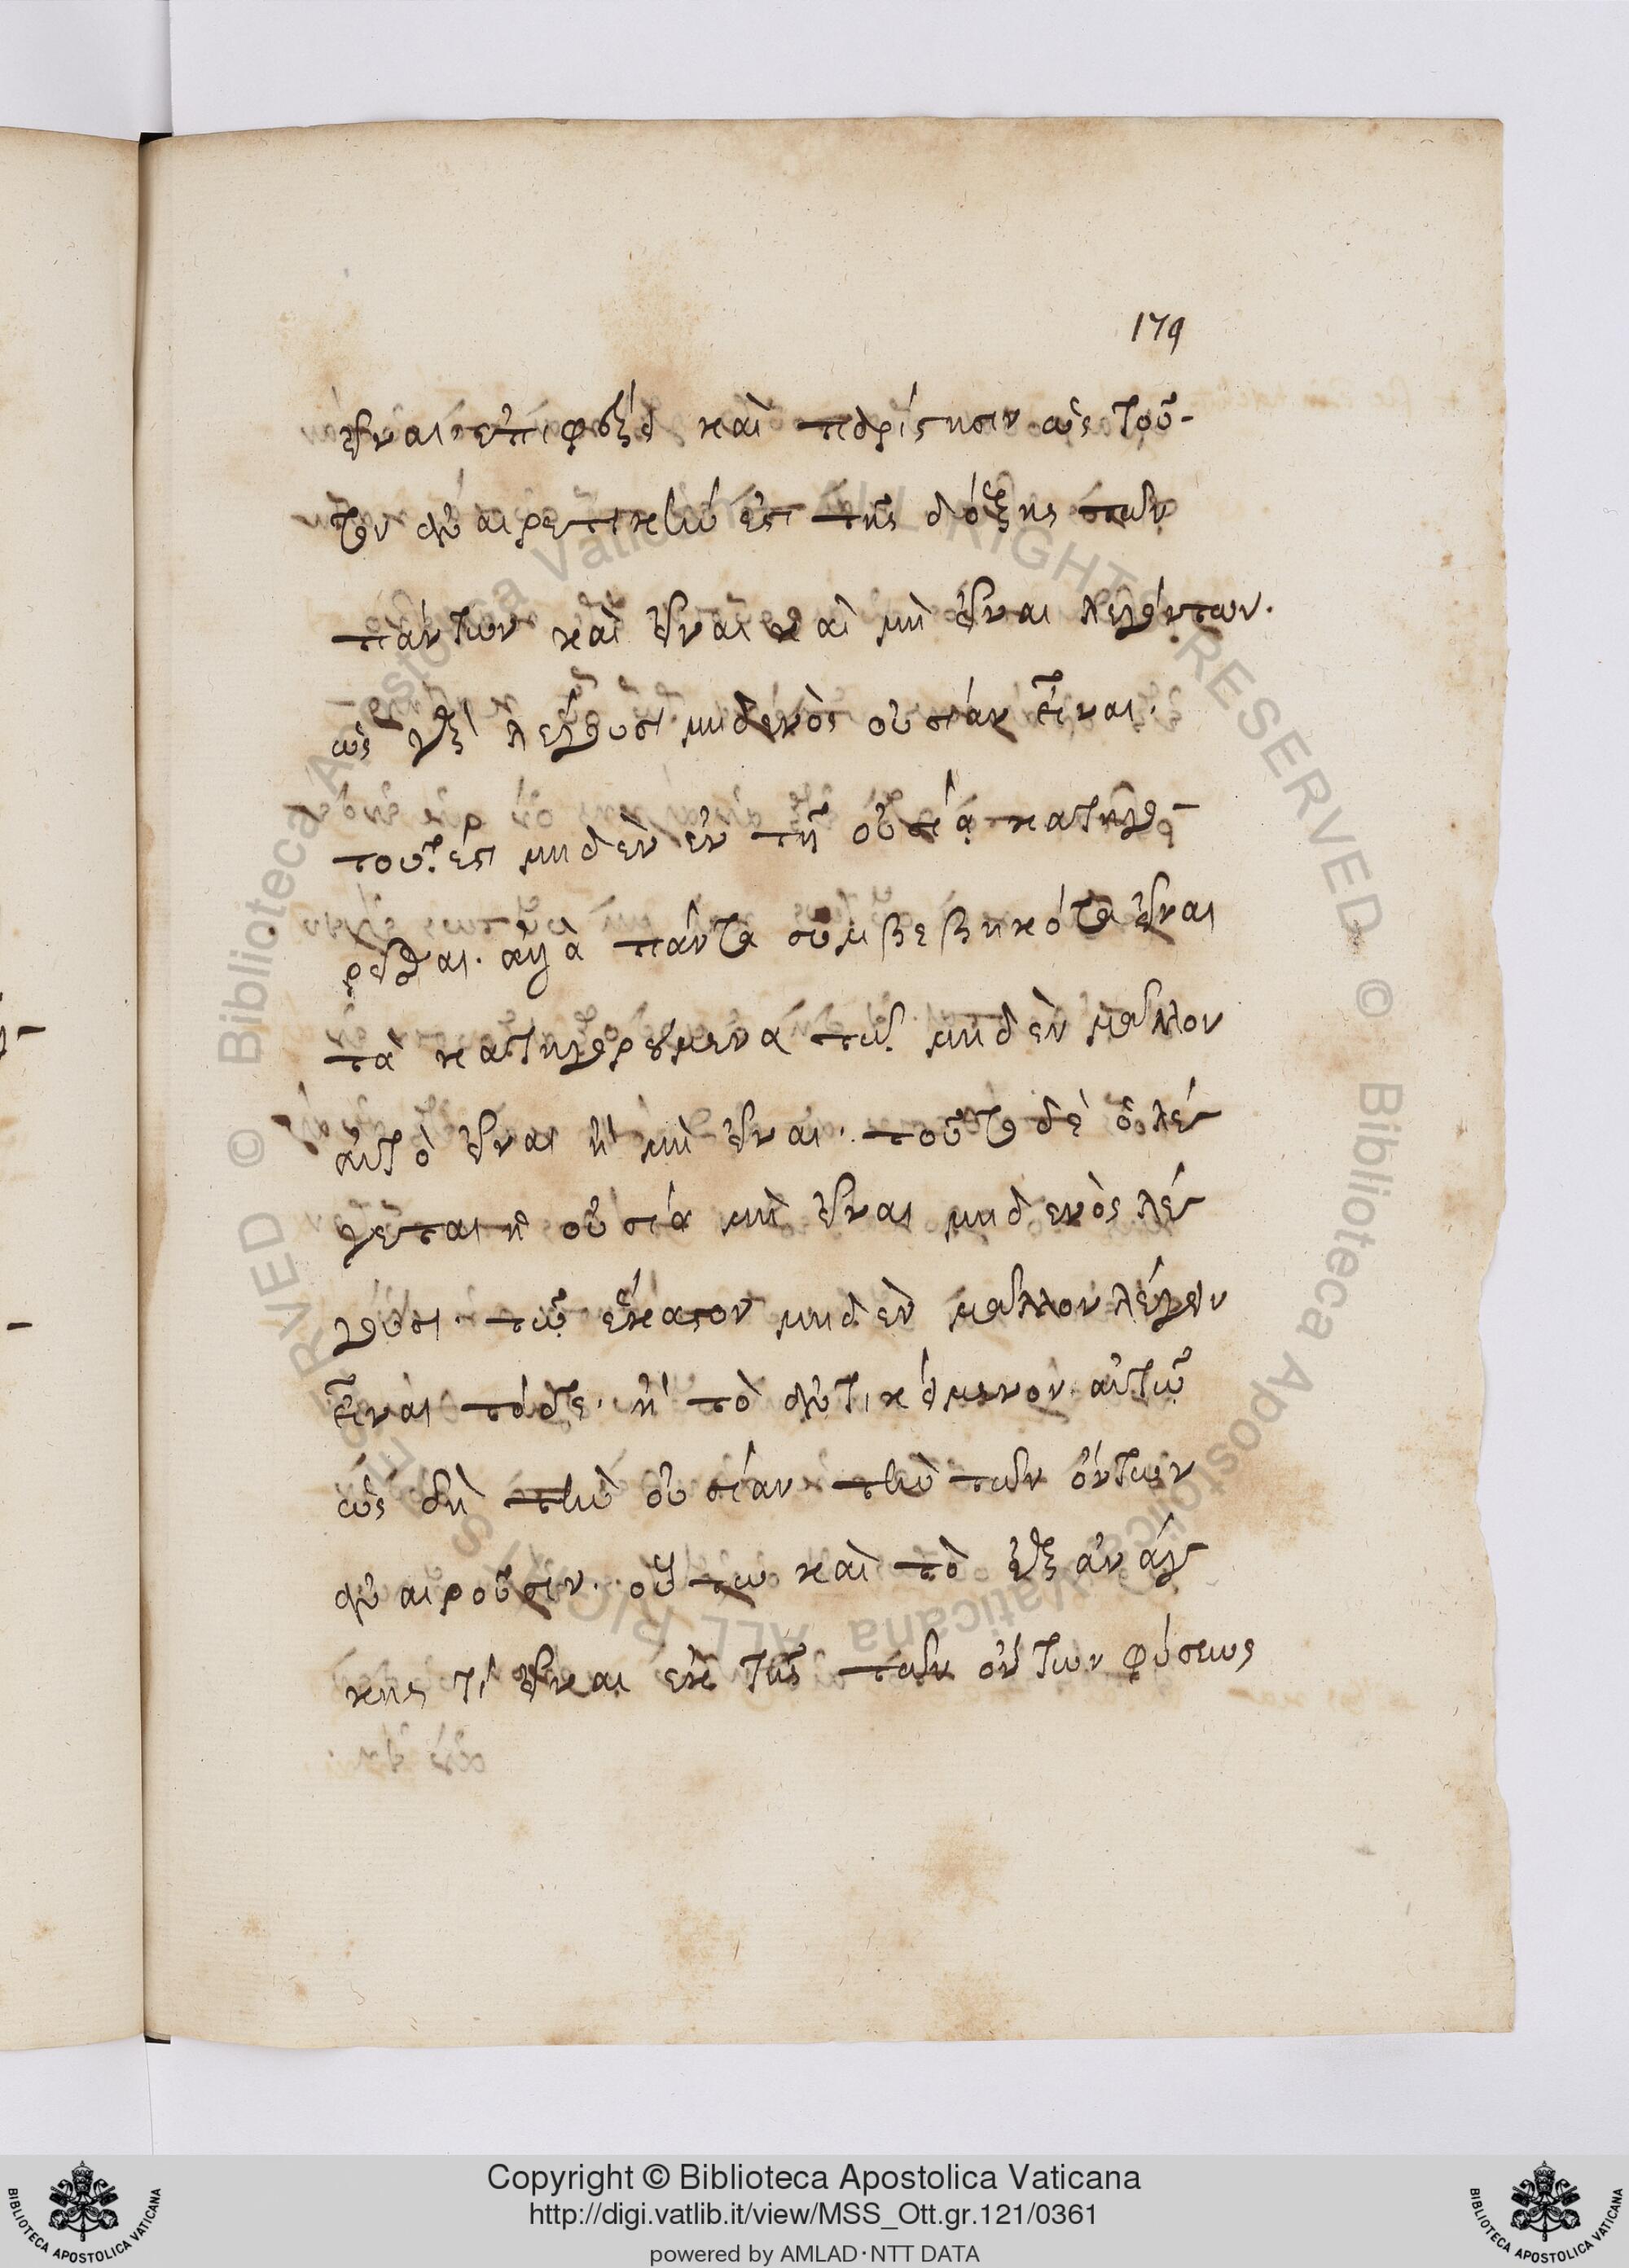 179
εἶναι ἐπιφέρει καὶ παρίστησιν ὡς τοῦ-
τον ἀναιρετικὴν ἐστὶ τῆς δόξης τῶν
πάντων καὶ εἶναι καὶ μὴ εἶναι λεγόντων.
ὡς γὰρ λέγουσι μηδενὸς οὐσίαν εἶναι.
τουτέστι μηδὲν ἐν τῇ οὐσίᾳ κατηγο-
ρεῖσθαι. ἀλλὰ πάντα συμβεβηκότα εἶναι
τὰ κατηγορούμενα τῷ μηδὲν μᾶλλον
αὐτὸ εἶναι ἢ μὴ εἶναι. τοῦτο δὲ ὃ λέ
γεται ἡ οὐσία μὴ εἶναι μηδενὸς λέ
γουσι. τῷ ἕκαστον μηδὲν μᾶλλον λέγειν
εἶναι τόδε. ἢ τὸ ἀντικείμενον αὐτῷ
ὡς δὴ τὴν οὐσίαν τὴν τῶν ὄντων
ἀναιροῦσιν. οὕτω καὶ τὸ ἐξ ἀνάγ
κης τὶ εἶναι ἐκ τῆς τῶν ὄντων φύσεως
Copyright © Biblioteca Apostolica Vaticana
http://digi.vatlib.it/view/MSS_Ott.gr.121/0361
powered by AMLAD·NTT DATA
BIBLIOTECA APOSTOLICA VATICANA
BIBLIOTECA APOSTOLICA VATICANA